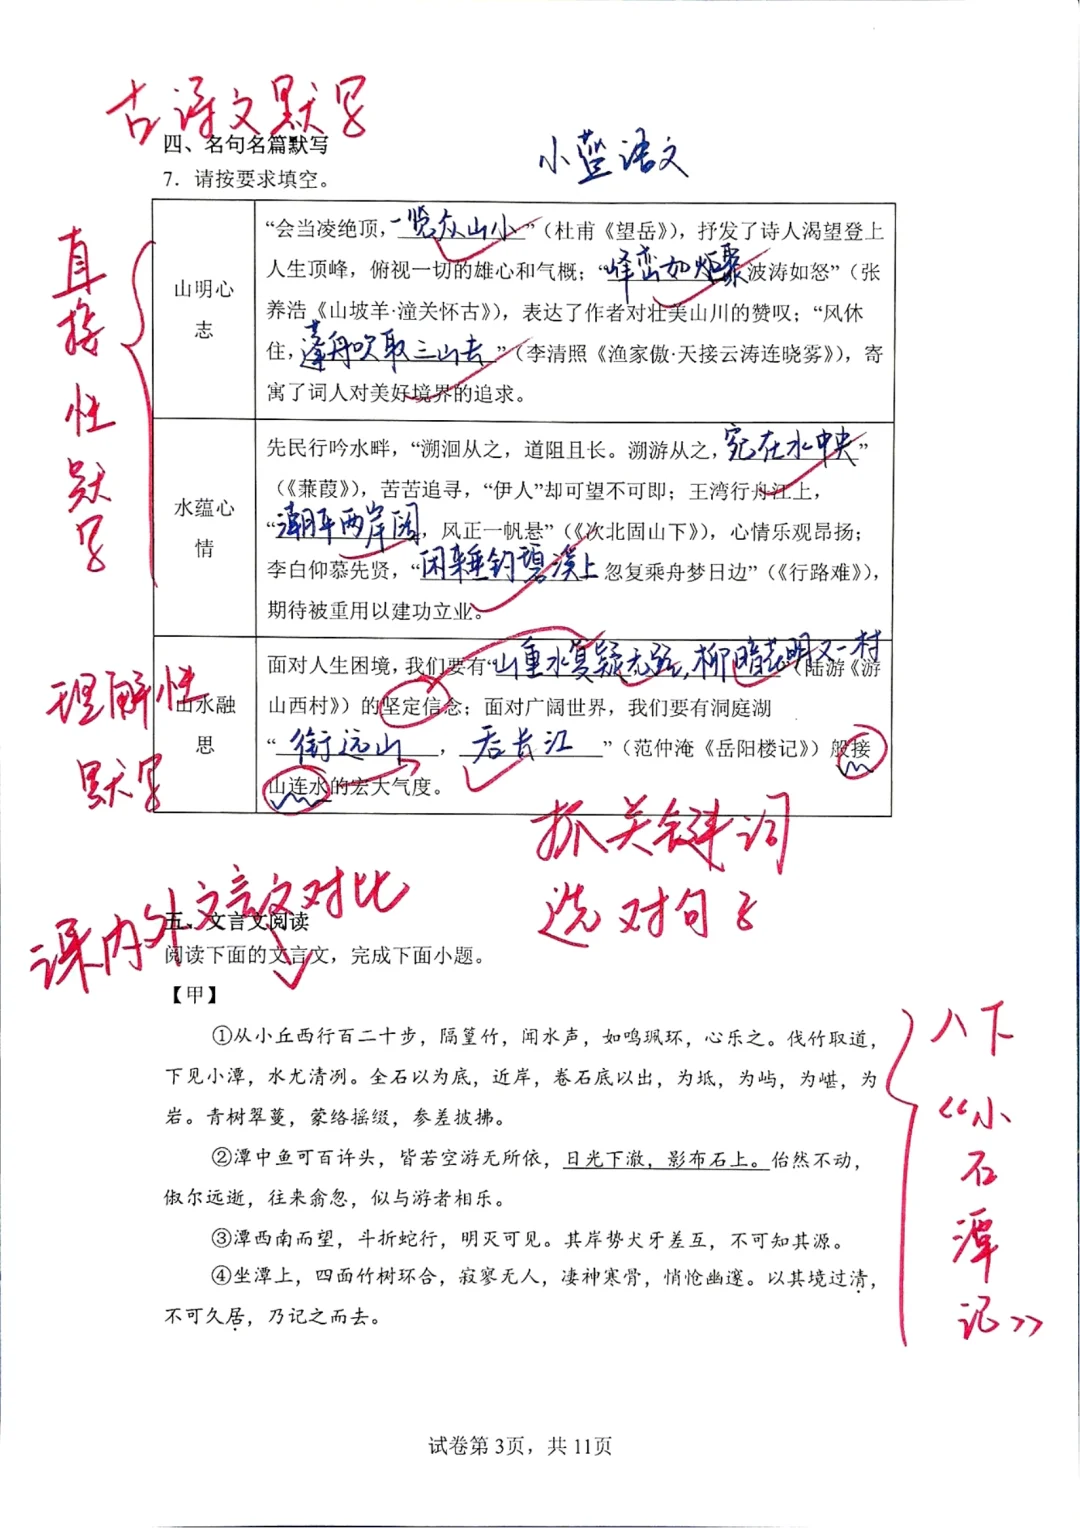 古诗文默写
四、名句名篇默写
小蓝语文
7．请按要求填空。
直接性默写
山明心志
“会当凌绝顶，一览众山小”（杜甫《望岳》），抒发了诗人渴望登上
人生顶峰，俯视一切的雄心和气概；“峰峦如炬聚波涛如怒”（张
养浩《山坡羊·潼关怀古》），表达了作者对壮美山川的赞叹；“风休
住，蓬舟吹取三山去”（李清照《渔家傲·天接云涛连晓雾》），寄
寓了词人对美好境界的追求。
水蕴心情
先民行吟水畔，“溯洄从之，道阻且长。溯游从之，宛在水中央”
（《蒹葭》），苦苦追寻，“伊人”却可望不可即；王湾行舟江上，
“潮平两岸阔，风正一帆悬”（《次北固山下》），心情乐观昂扬；
李白仰慕先贤，“闲来垂钓碧溪上 忽复乘舟梦日边”（《行路难》），
期待被重用以建功立业。
理解性默写
山水融思
面对人生困境，我们要有“山重水复疑无路，柳暗花明又一村（陆游《游
山西村》）的坚定信念；面对广阔世界，我们要有洞庭湖
“衔远山，吞长江”（范仲淹《岳阳楼记》）般接
山连水的宏大气度。
抓关键词
选对句子
课内外文言文对比
五、文言文阅读
阅读下面的文言文，完成下面小题。
【甲】
①从小丘西行百二十步，隔篁竹，闻水声，如鸣珮环，心乐之。伐竹取道，
下见小潭，水尤清冽。全石以为底，近岸，卷石底以出，为坻，为屿，为嵁，为
岩。青树翠蔓，蒙络摇缀，参差披拂。
②潭中鱼可百许头，皆若空游无所依，日光下澈，影布石上。佁然不动，
俶尔远逝，往来翕忽，似与游者相乐。
③潭西南而望，斗折蛇行，明灭可见。其岸势犬牙差互，不可知其源。
④坐潭上，四面竹树环合，寂寥无人，凄神寒骨，悄怆幽邃。以其境过清，
不可久居，乃记之而去。
八下
《小石潭记》
试卷第 3页，共 11页